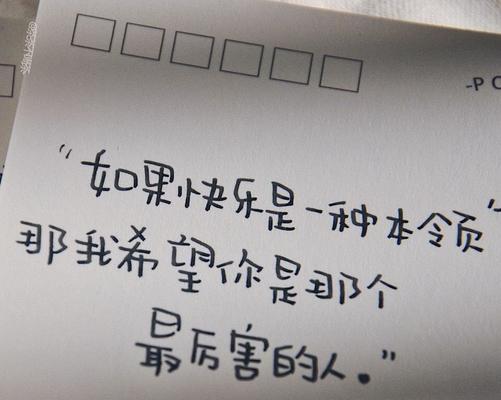 -P
“如果快乐是一种本领
那我希望你是那个
最厉害的人。”